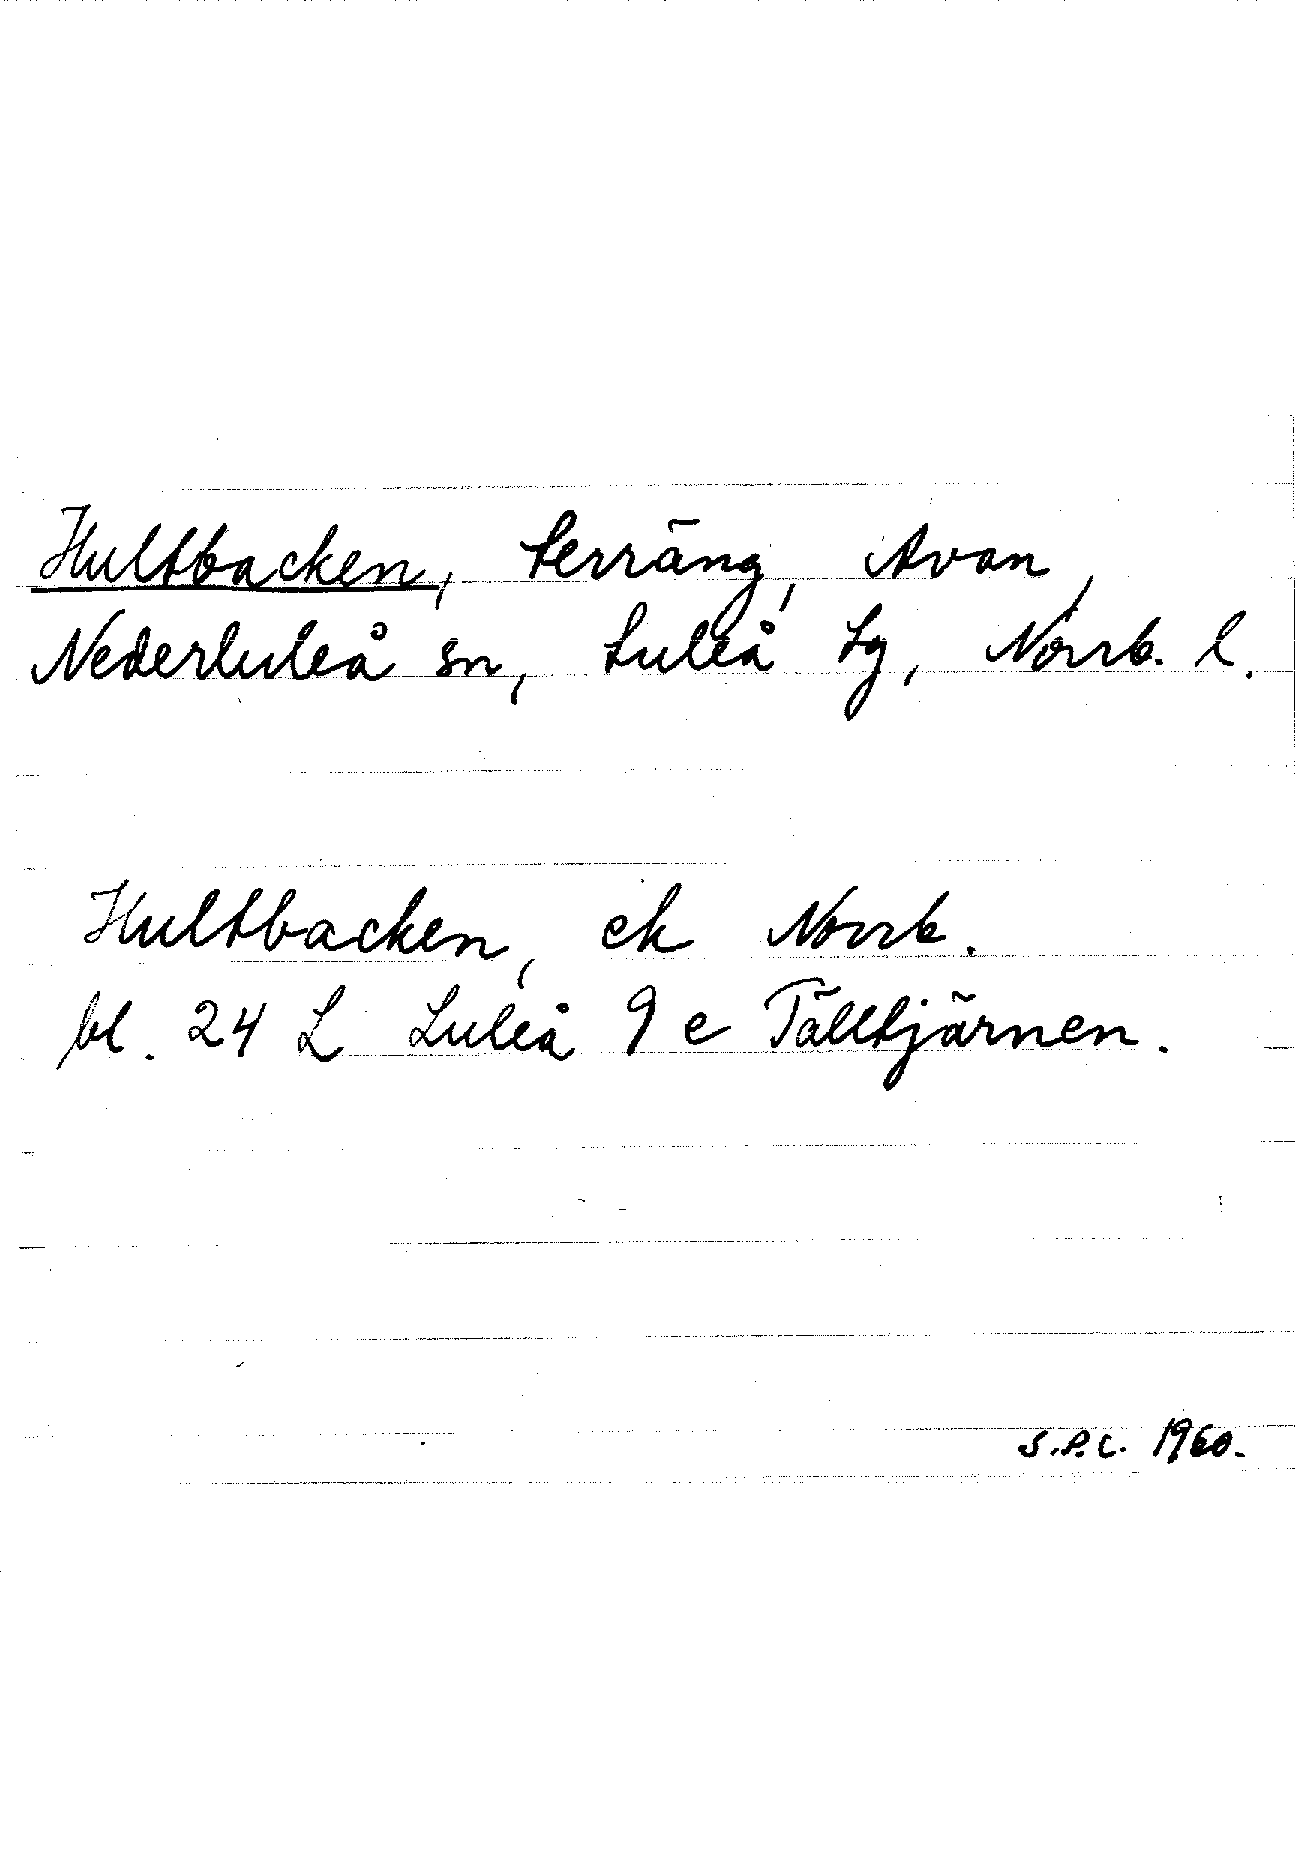 Hultbacken, terräng, Avan,
Nederluleå sn, Luleå tg, Norrb. l.
Hultbacken, ek Norrb.
bl. 24 L Luleå 9 e Tälltjärnen.
S.P.L. 1960.